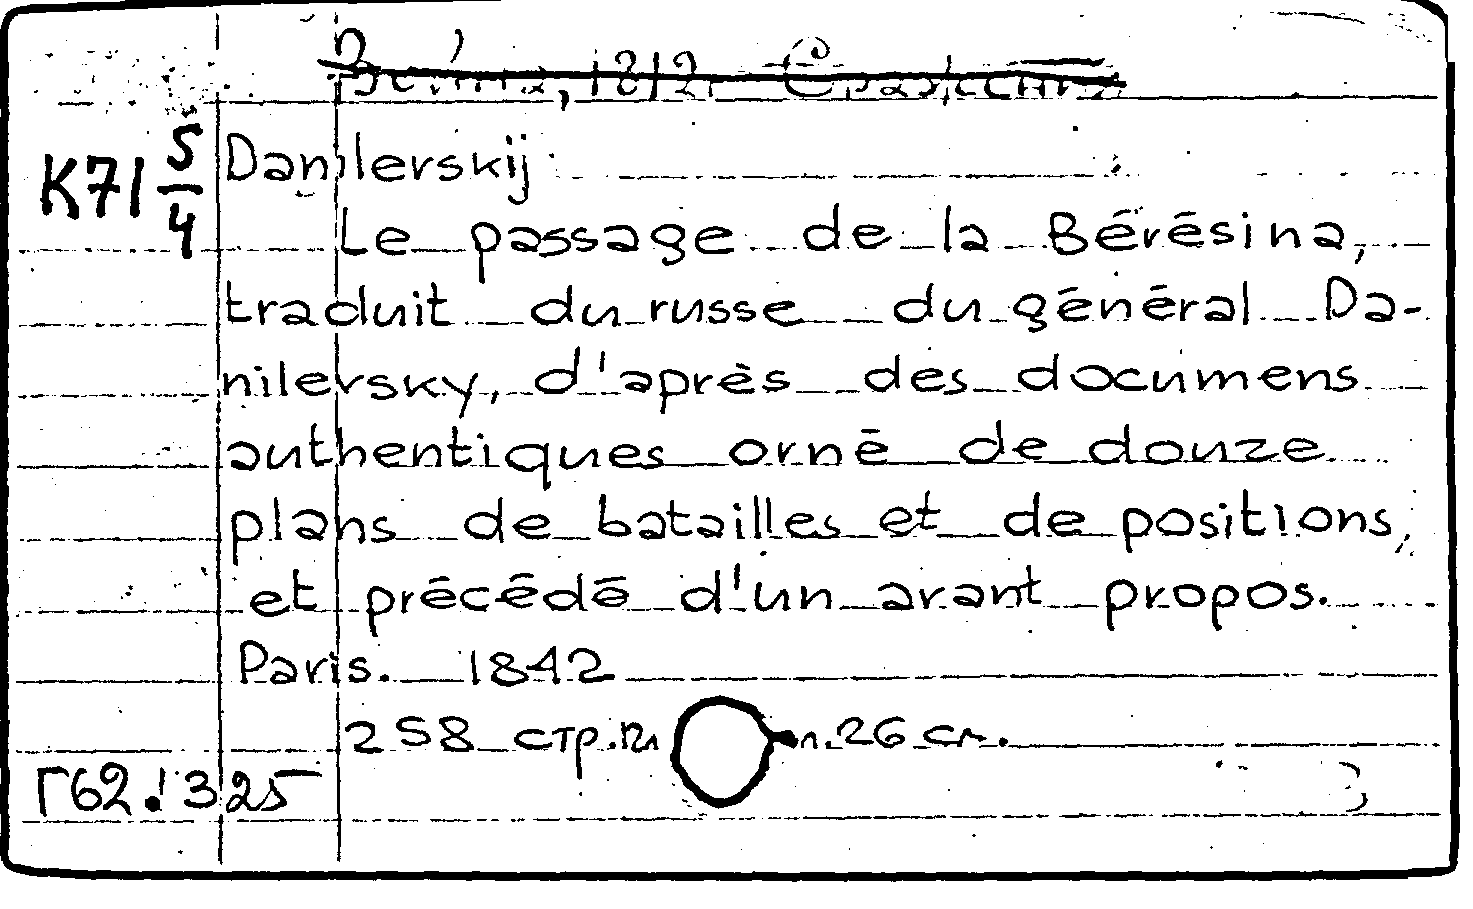 K71 5/4
Danilevskij
Le passage de la Bérésina,
traduit du russe du général Da-
nilevsky, d'après des documens
authentiques orné de douze
plans de batailles et de positions,
et précédé d'un avant propos.
Paris. 1842
258 стр. 26 см.
Г62.1325